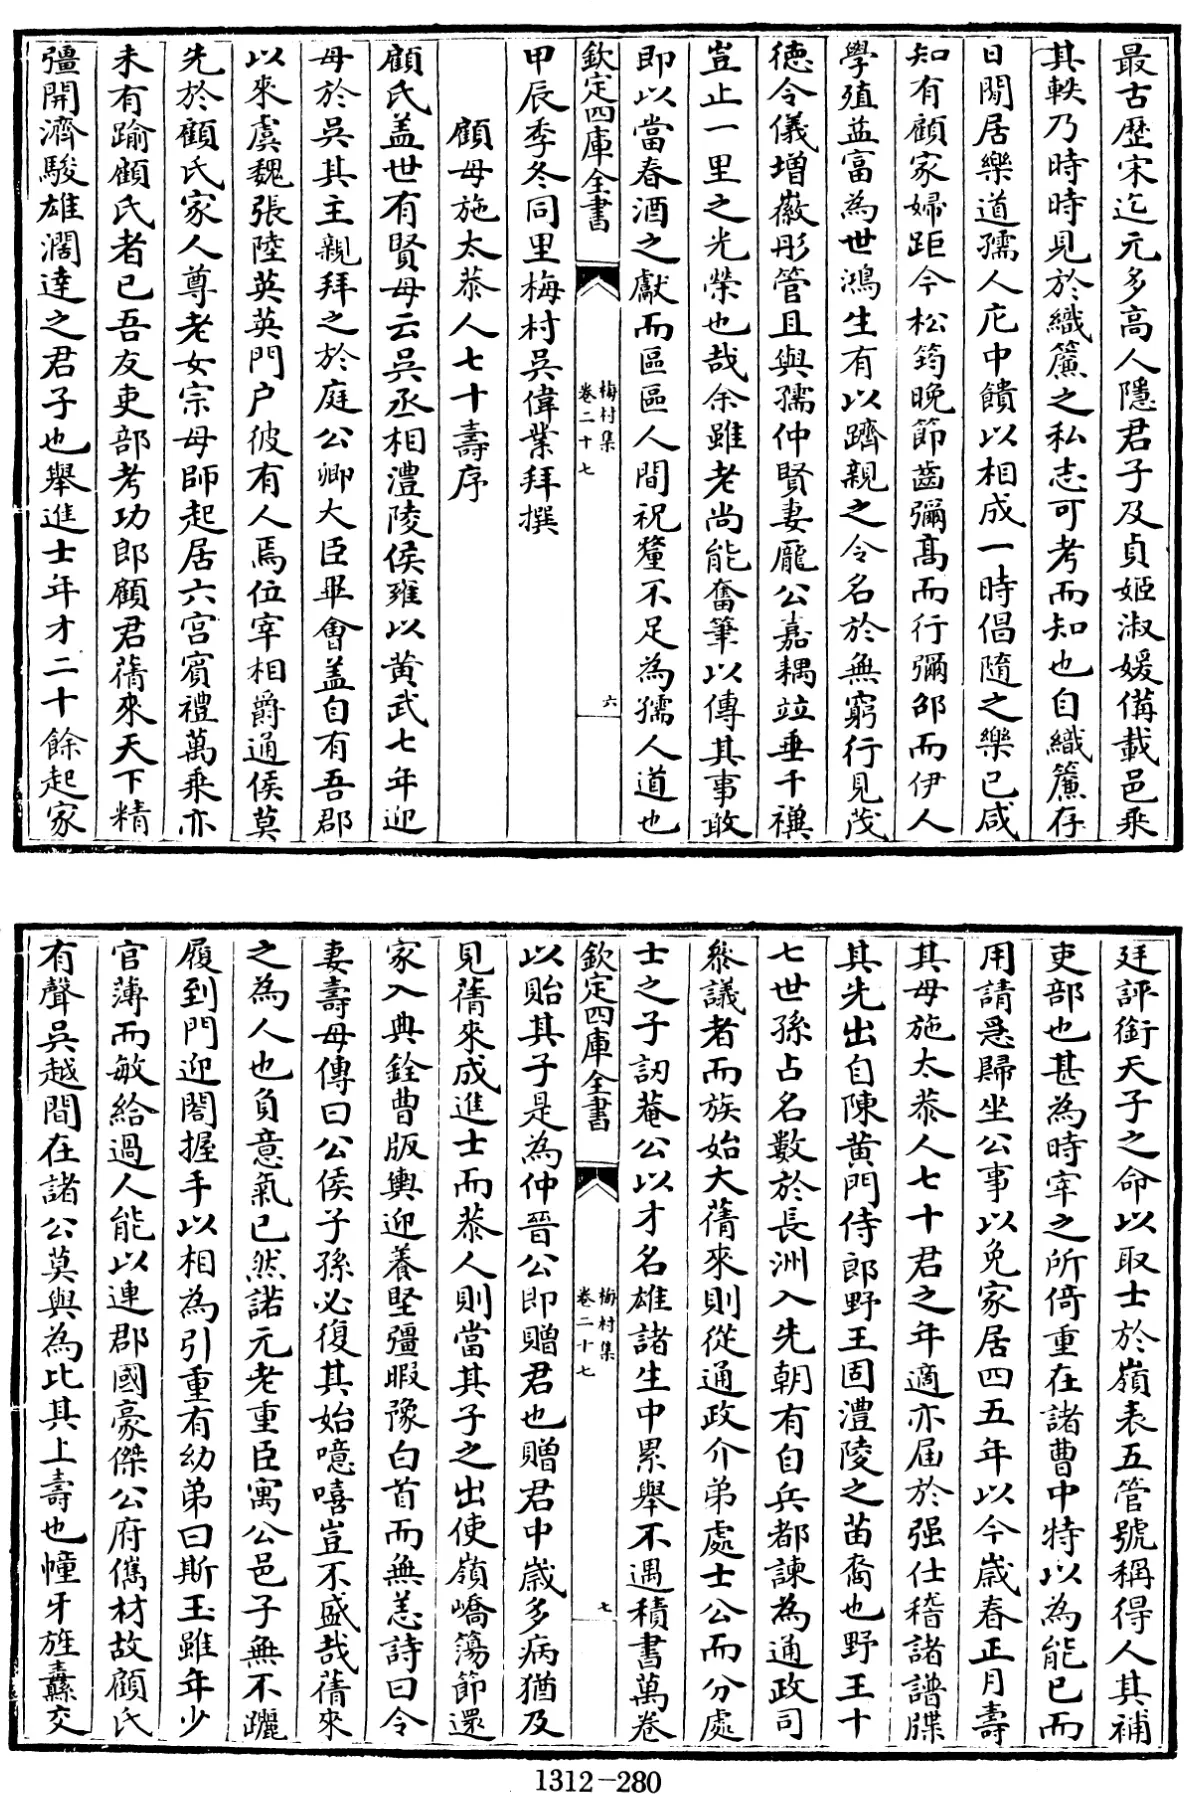 最古歴宋迄元多高人隱君子及貞姬淑媛備載邑乘
其軼乃時時見於織簾之私志可考而知也自織簾存
日閒居樂道孺人庀中饋以相成一時倡隨之樂已咸
知有顧家婦距今松筠晚節齒彌髙而行彌邵而伊人
學殖益富為世鴻生有以躋親之令名於無窮行見茂
徳令儀增徽彤管且與孺仲賢妻龐公嘉耦竝垂千禩
豈止一里之光榮也哉余雖老尚能奮筆以傳其事敢
即以當春酒之獻而區區人間祝釐不足為孺人道也
欽定四庫全書
梅村集
卷二十七
六
甲辰季冬同里梅村吳偉業拜撰
顧母施太恭人七十壽序
顧氏盖世有賢母云吳丞相澧陵侯雍以黄武七年迎
母於吳其主親拜之於庭公卿大臣畢會盖自有吾郡
以來虞魏張陸英英門户彼有人焉位宰相爵通侯莫
先於顧氏家人尊老女宗母師起居六宫賓禮萬乘亦
未有踰顧氏者已吾友吏部考功郎顧君蒨來天下精
彊開濟駿雄濶達之君子也舉進士年才二十餘起家
廷評銜天子之命以取士於嶺表五管號稱得人其補
吏部也甚為時宰之所倚重在諸曹中特以為能已而
用請急歸坐公事以免家居四五年以今歲春正月壽
其母施太恭人七十君之年適亦届於强仕稽諸譜牒
其先出自陳黄門侍郎野王固澧陵之苗裔也野王十
七世孫占名數於長洲入先朝有自兵都諫為通政司
叅議者而族始大蒨來則從通政介弟處士公而分處
士之子訒菴公以才名雄諸生中累舉不遇積書萬卷
欽定四庫全書
梅村集
卷二十七
七
以貽其子是為仲晉公即贈君也贈君中歲多病猶及
見蒨來成進士而恭人則當其子之出使嶺嶠蕩節還
家入典銓曹版輿迎養堅彊暇豫白首而無恙詩曰令
妻壽母傳曰公侯子孫必復其始噫嘻豈不盛哉蒨來
之為人也負意氣已然諾元老重臣寓公邑子無不躧
履到門迎閤握手以相為引重有幼弟曰斯玉雖年少
官薄而敏給過人能以連郡國豪傑公府儁材故顧氏
有聲吳越間在諸公莫與為比其上壽也幢牙旌纛交
1312-280